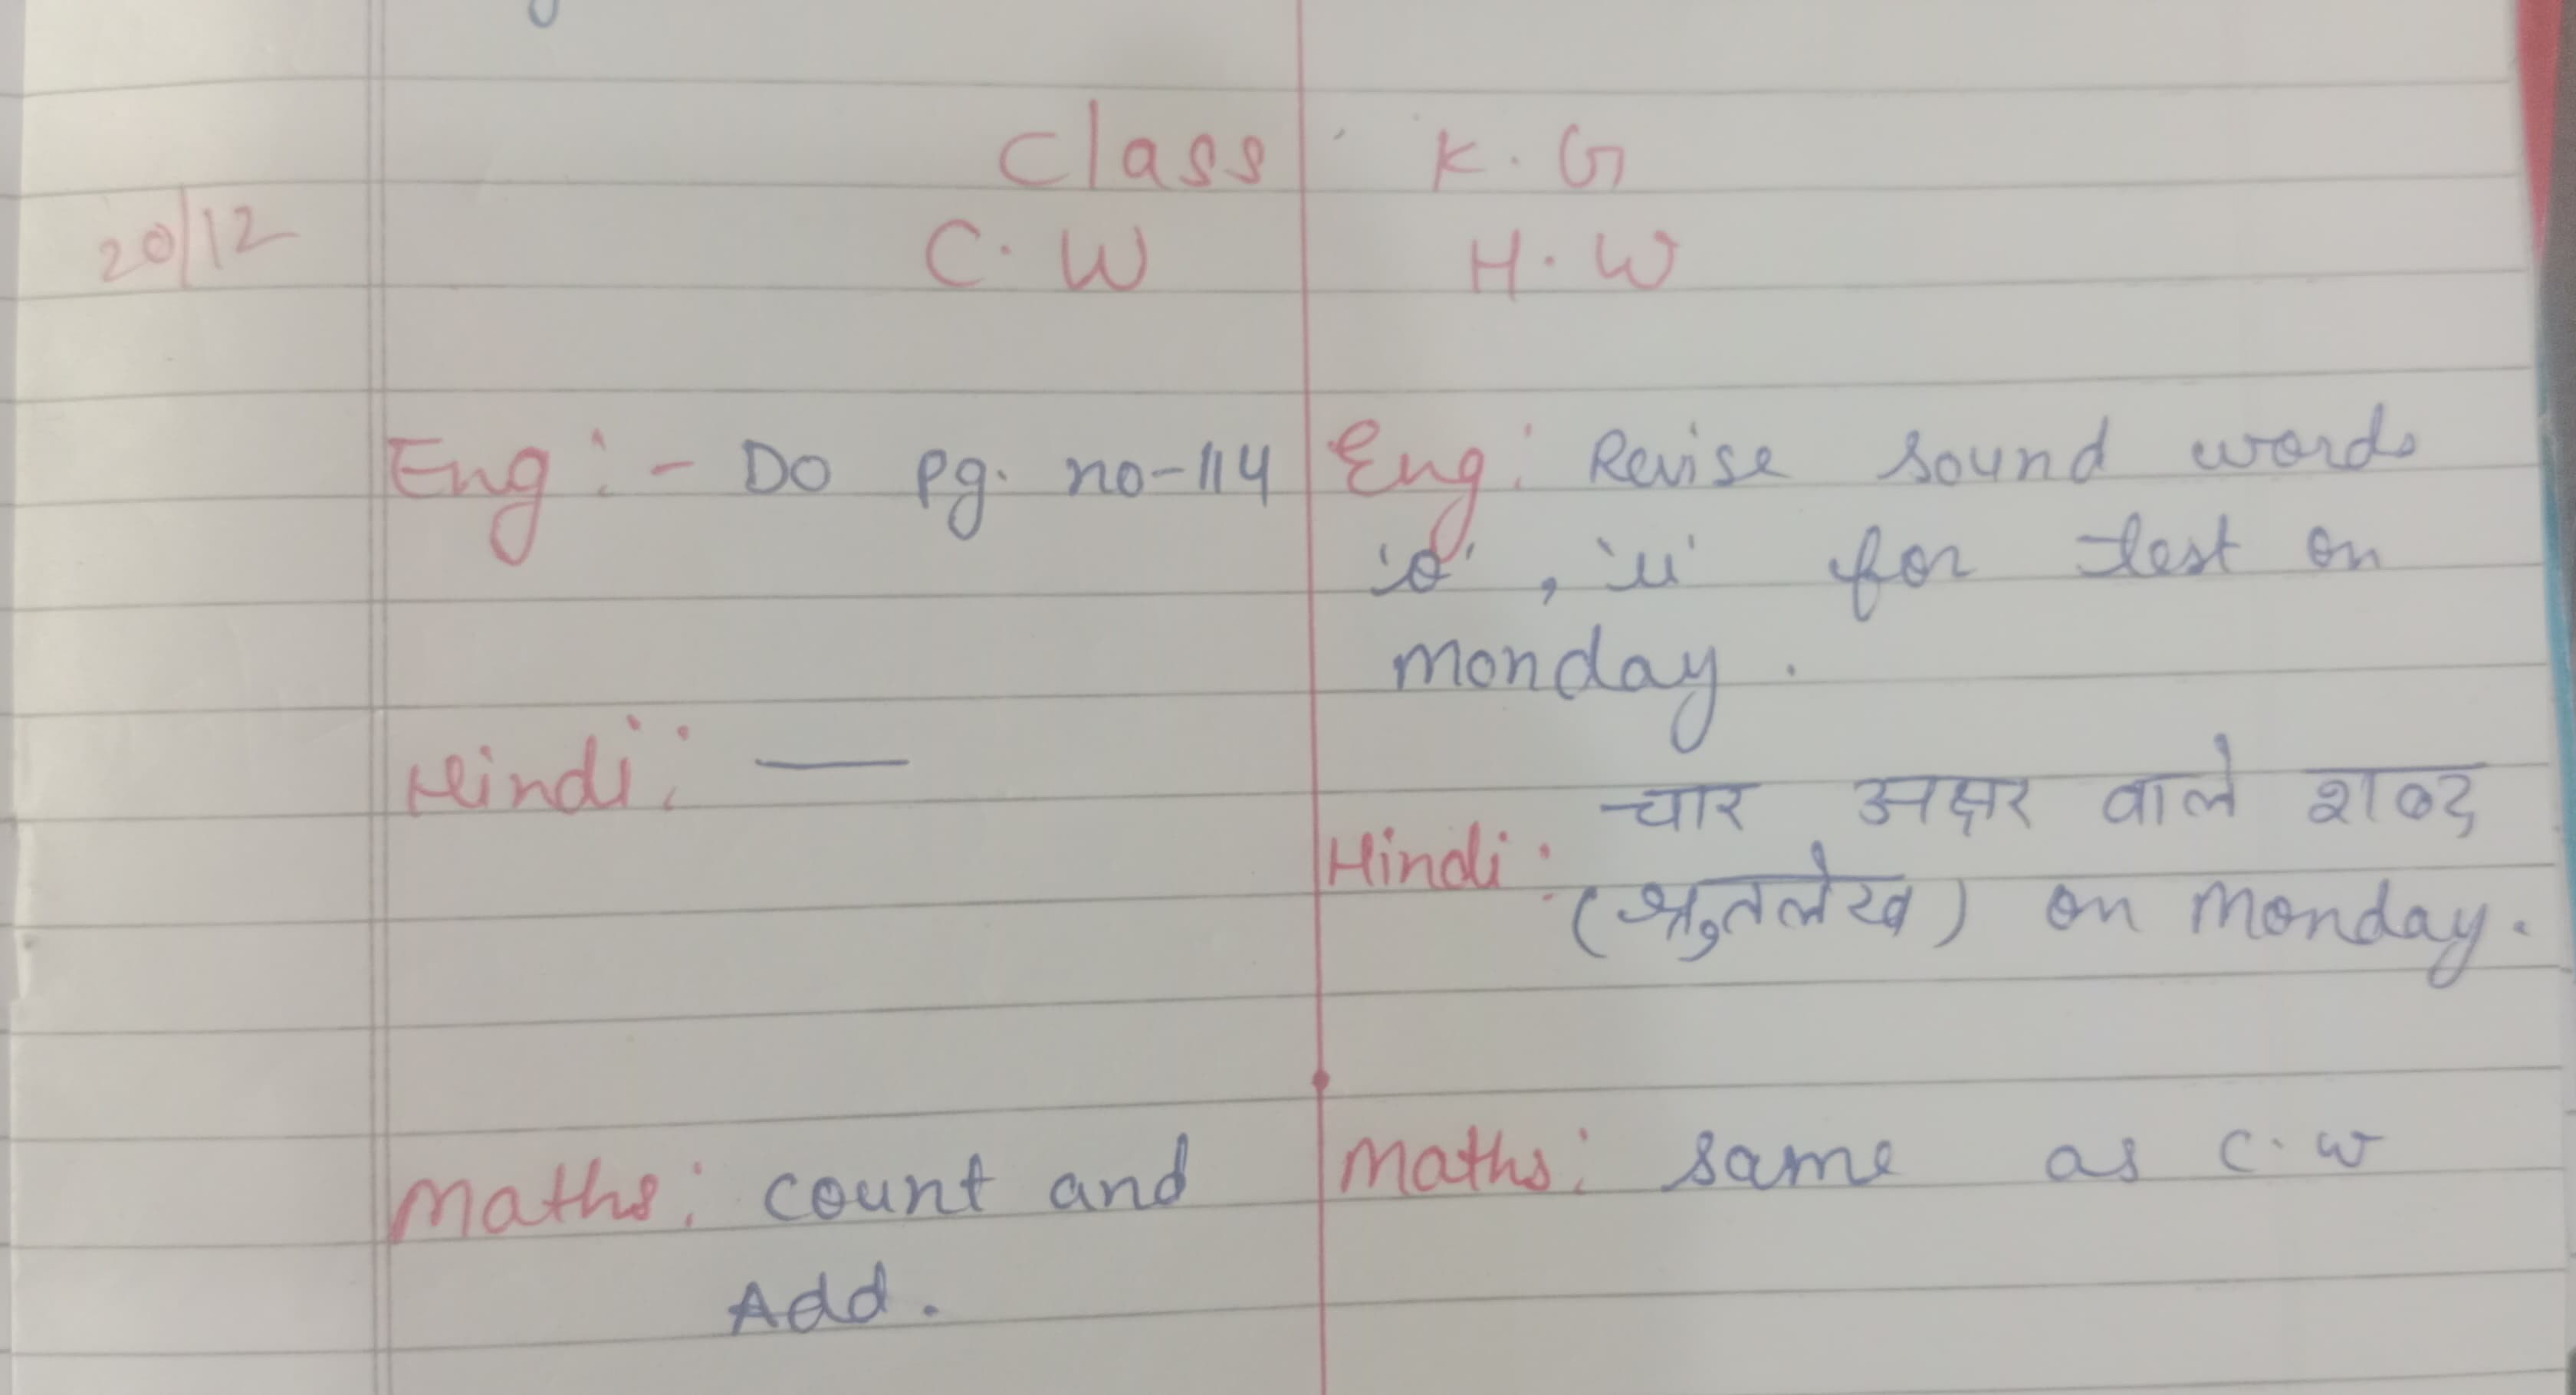 Class K.G
20/12 C.W H.W
Eng:- Do Pg. no-114
Hindi: —
Maths: count and
Add.
Eng: Revise sound words
'o', 'u' for test on
monday.
चार अक्षर वाले शब्द
Hindi:
(श्रुतलेख) on monday.
Maths: same as C.W